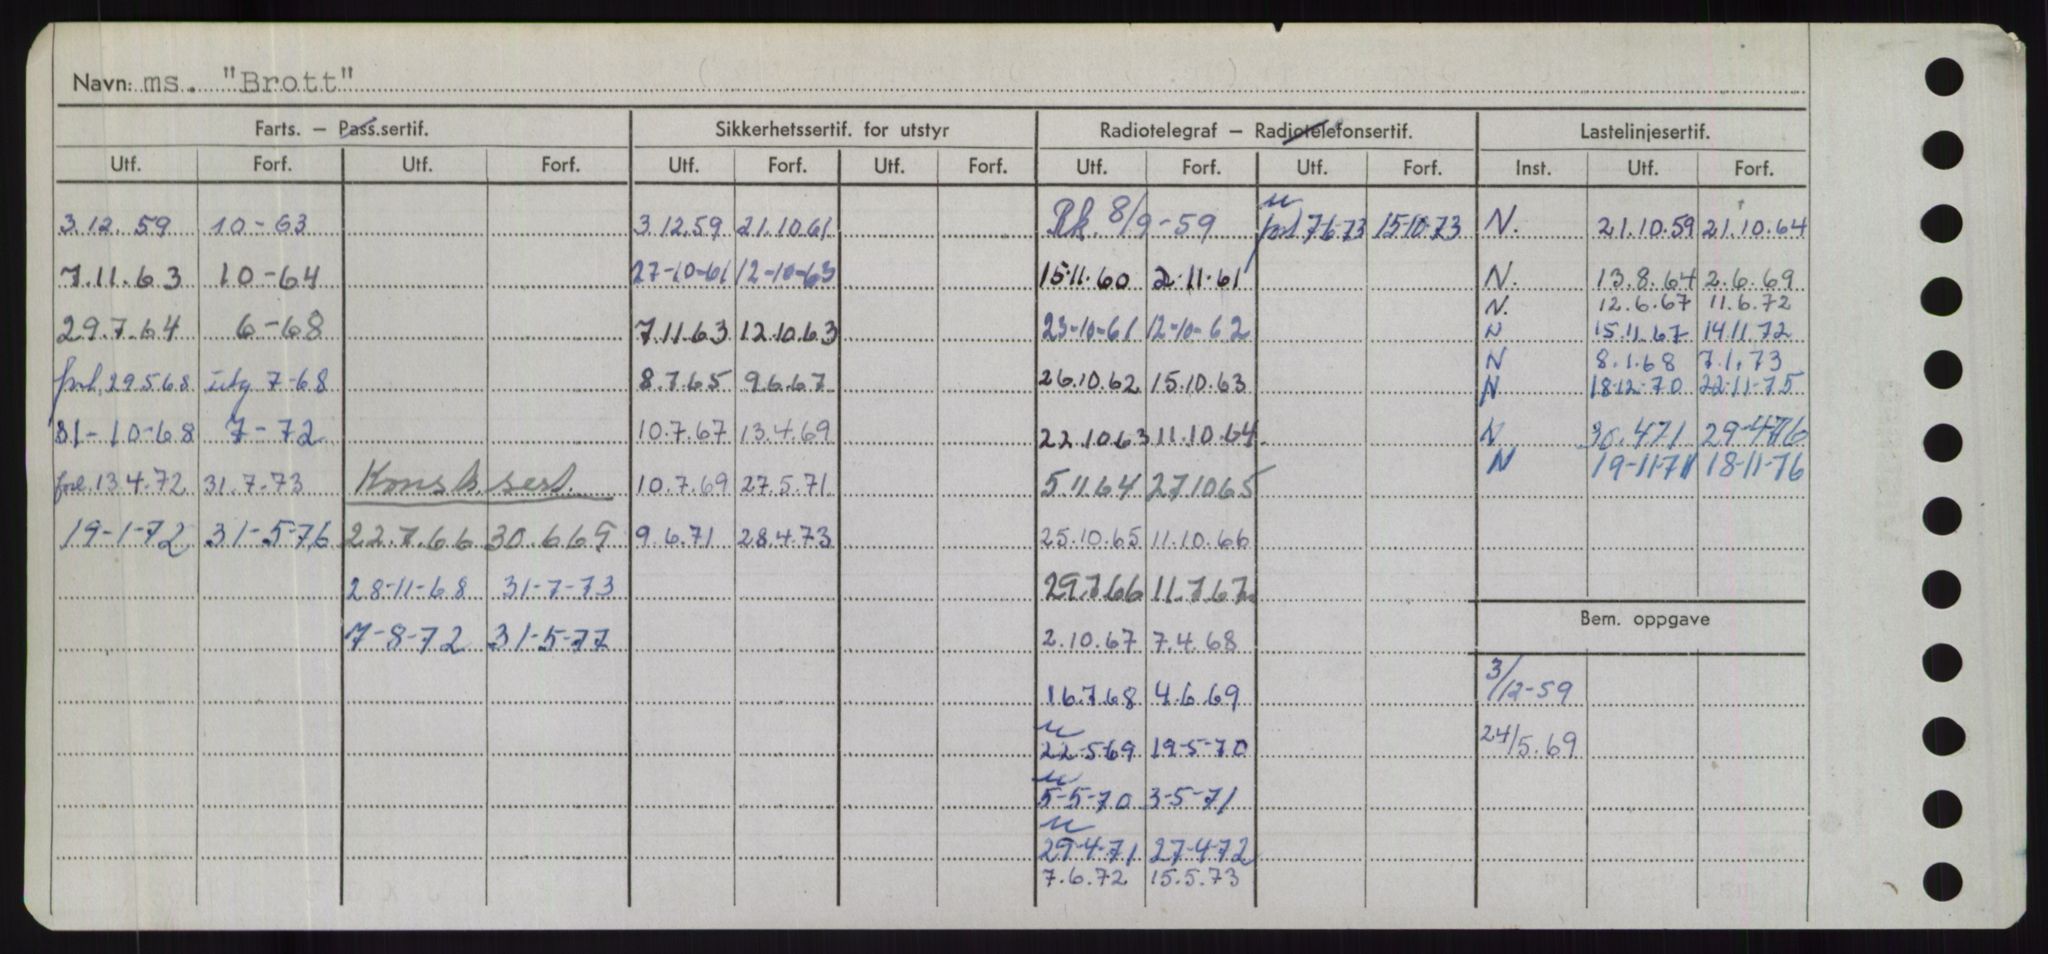 Navn: ms. "Brott"
Farts. – Pass.sertif. Sikkerhetssertif. for utstyr Radiotelegraf – Radiotelefonsertif. Lastelinjesertif.
Utf. Forf. Utf. Forf. Utf. Forf. Utf. Forf. Utf. Forf. Utf. Forf. Inst. Utf. Forf.
3.12.59 10-63 3.12.59 21.10.61 Rk. 8/9-59 forl 7-6-73 15-10-73 N. 21.10.59 21.10.64
7.11.63 10-64 27-10-61 12-10-63 15.11.60 2.11.61 N. 13.8.64 2.6.69
N. 12.6.67 11.6.72
29.7.64 6-68 7.11.63 12.10.63 23-10-61 12-10-62 N 15.11.67 14.11.72
N 8.1.68 7.1.73
forl. 29.5.68 utg 7-68 8.7.65 9.6.67 26.10.62 15.10.63 N 18-12-70 22-11-75
31-10-68 7-72 10.7.67 13.4.69 22.10.63 11.10.64 N 30.4.71 29-4-76
N 19-11-71 18-11-76
forl. 13.4.72 31.7.73 Konstr. sert. 10.7.69 27.5.71 5.11.64 27.10.65
19-1-72 31-5-76 22.7.66 30.6.69 9.6.71 28.4.73 25.10.65 11.10.66
28-11-68 31-7-73 29.7.66 11.7.67
Bem. oppgave
7-8-72 31-5-77 2.10.67 7.4.68
16.7.68 4.6.69 3/12-59
22-5-69 19-5-70 24/5.69
5-5-70 3-5-71
29-4-71 27-4-72
7.6.72 15.5.73